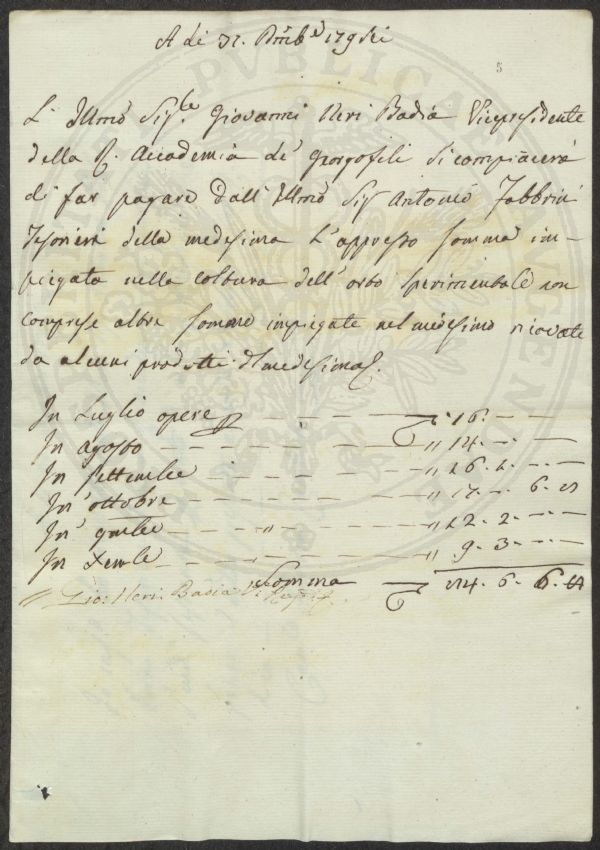 A di 31. Dmbe 179sei
5
L' Illmo Sigre. Giovanni Neri Badia Vicepresidente
della R. Accademia de' Giorgofili si compiacerà
di far pagare dall' Illmo Sigr Antonio Fabbrini
Tesorieri della medesima L'appresso somma im-
piegata nella coltura dell' orto sperimentale non
comprese altre somme impiegate nel medesimo ricavate
da alcuni prodotti d'l medesimo.
In Luglio opere — 16. — —
In agosto — — — — " 14. — —
In settembre — — — — " 26. 2. — —
In ottobre — — — — " 17. — 6. 8
In 9mbre — — " — — " 22. 2. — —
In Xembre — — — — 9. 3. — —
Somma 6. 6. 8
Gio: Neri Badia